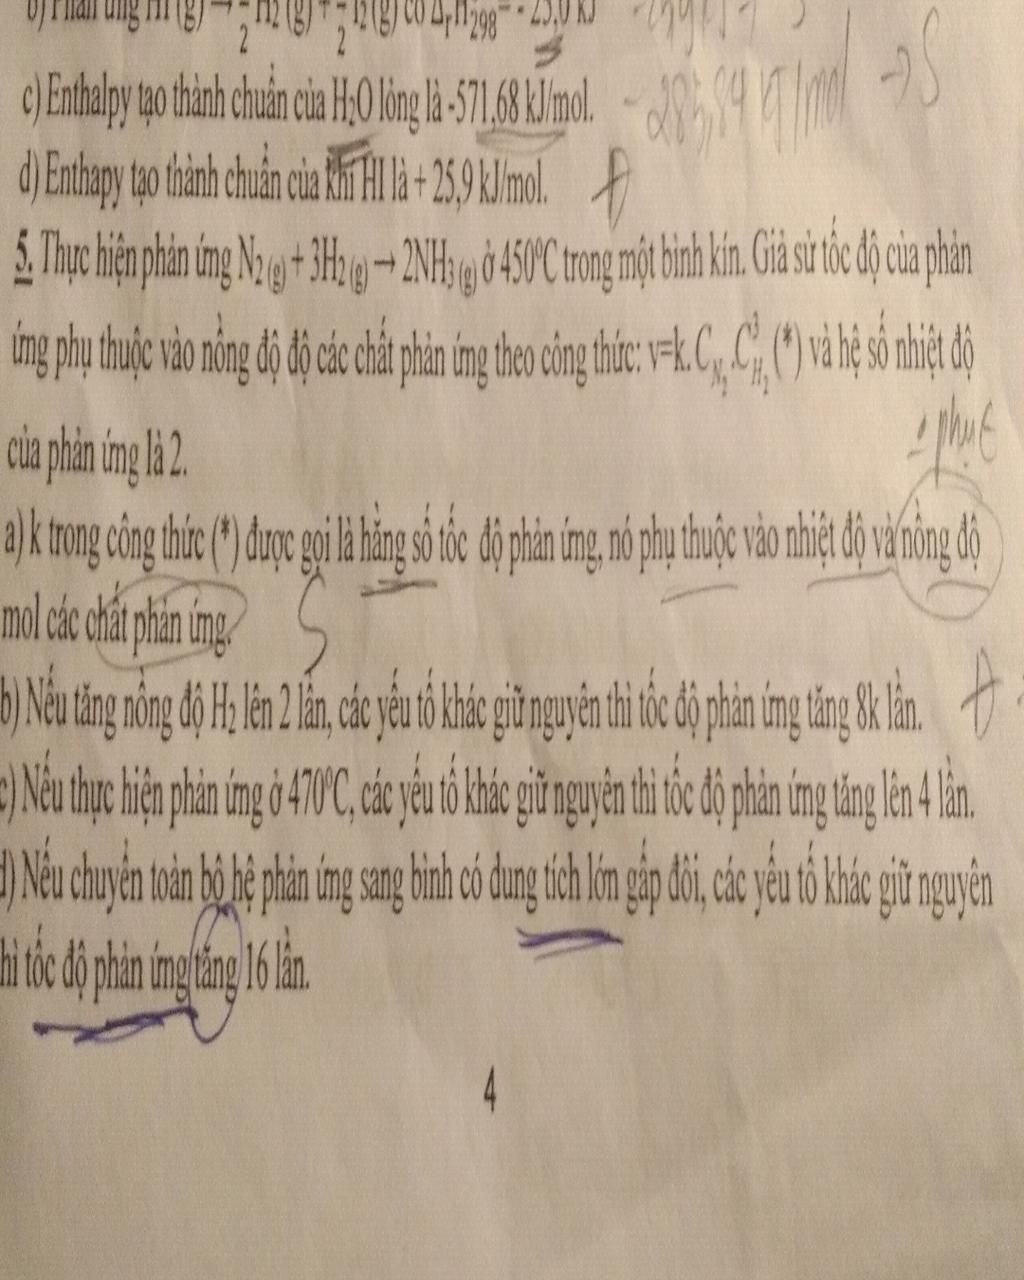 b) Phản ứng HI (g) → 1/2 H2 (g) + 1/2 I2 (g) có ΔrH298 = - 25,0 kJ
c) Enthalpy tạo thành chuẩn của H2O lỏng là -571,68 kJ/mol. - 285,84 kJ/mol → S
d) Enthapy tạo thành chuẩn của khí HI là + 25,9 kJ/mol. Đ
5. Thực hiện phản ứng N2 (g) + 3H2 (g) → 2NH3 (g) ở 450⁰C trong một bình kín. Giả sử tốc độ của phản
ứng phụ thuộc vào nồng độ độ các chất phản ứng theo công thức: v=k.C_N2.C³_H2 (*) và hệ số nhiệt độ
của phản ứng là 2.
a) k trong công thức (*) được gọi là hằng số tốc độ phản ứng, nó phụ thuộc vào nhiệt độ và nồng độ
mol các chất phản ứng. S
b) Nếu tăng nồng độ H2 lên 2 lần, các yếu tố khác giữ nguyên thì tốc độ phản ứng tăng 8k lần. Đ
c) Nếu thực hiện phản ứng ở 470⁰C, các yếu tố khác giữ nguyên thì tốc độ phản ứng tăng lên 4 lần.
d) Nếu chuyển toàn bộ hệ phản ứng sang bình có dung tích lớn gấp đôi, các yếu tố khác giữ nguyên
hì tốc độ phản ứng tăng 16 lần.
4